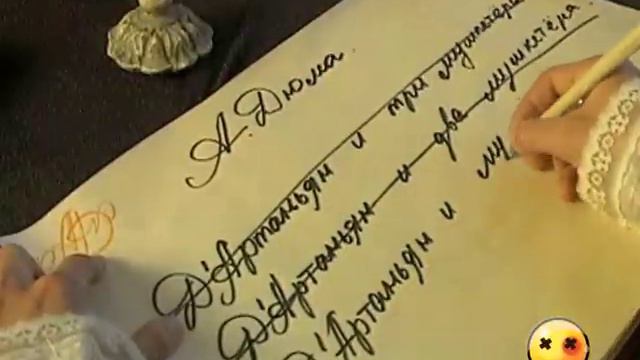 А. Дюма
Д'Артаньян и три мушкетёра
Д'Артаньян и два мушкетёра
Д'Артаньян и му